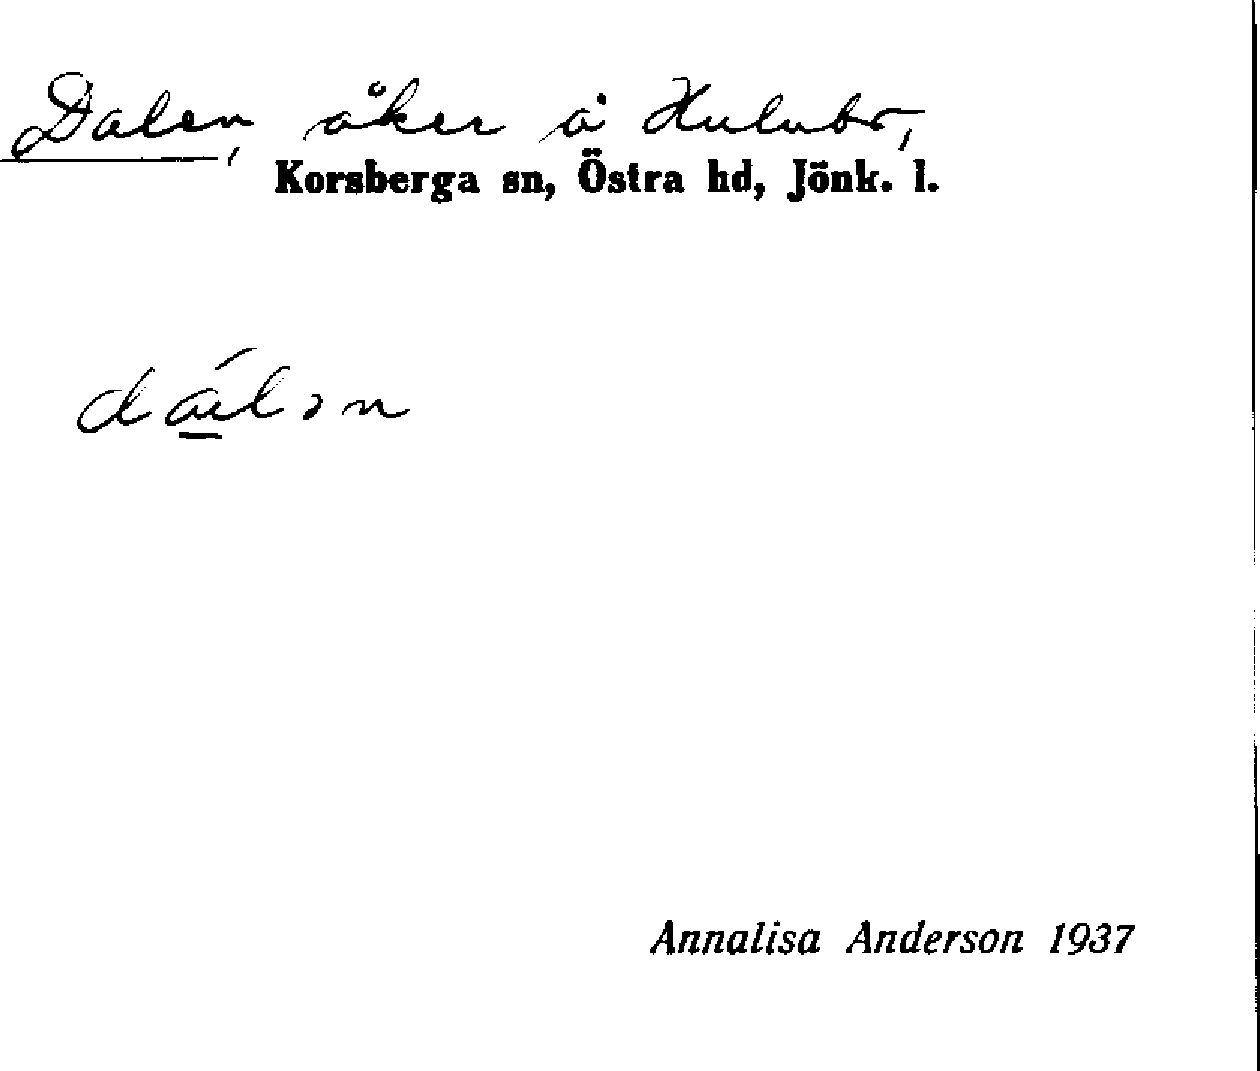 Dalen, åker å Hulubo,
Korsberga sn, Östra hd, Jönk. l.
dá̱lən
Annalisa Anderson 1937